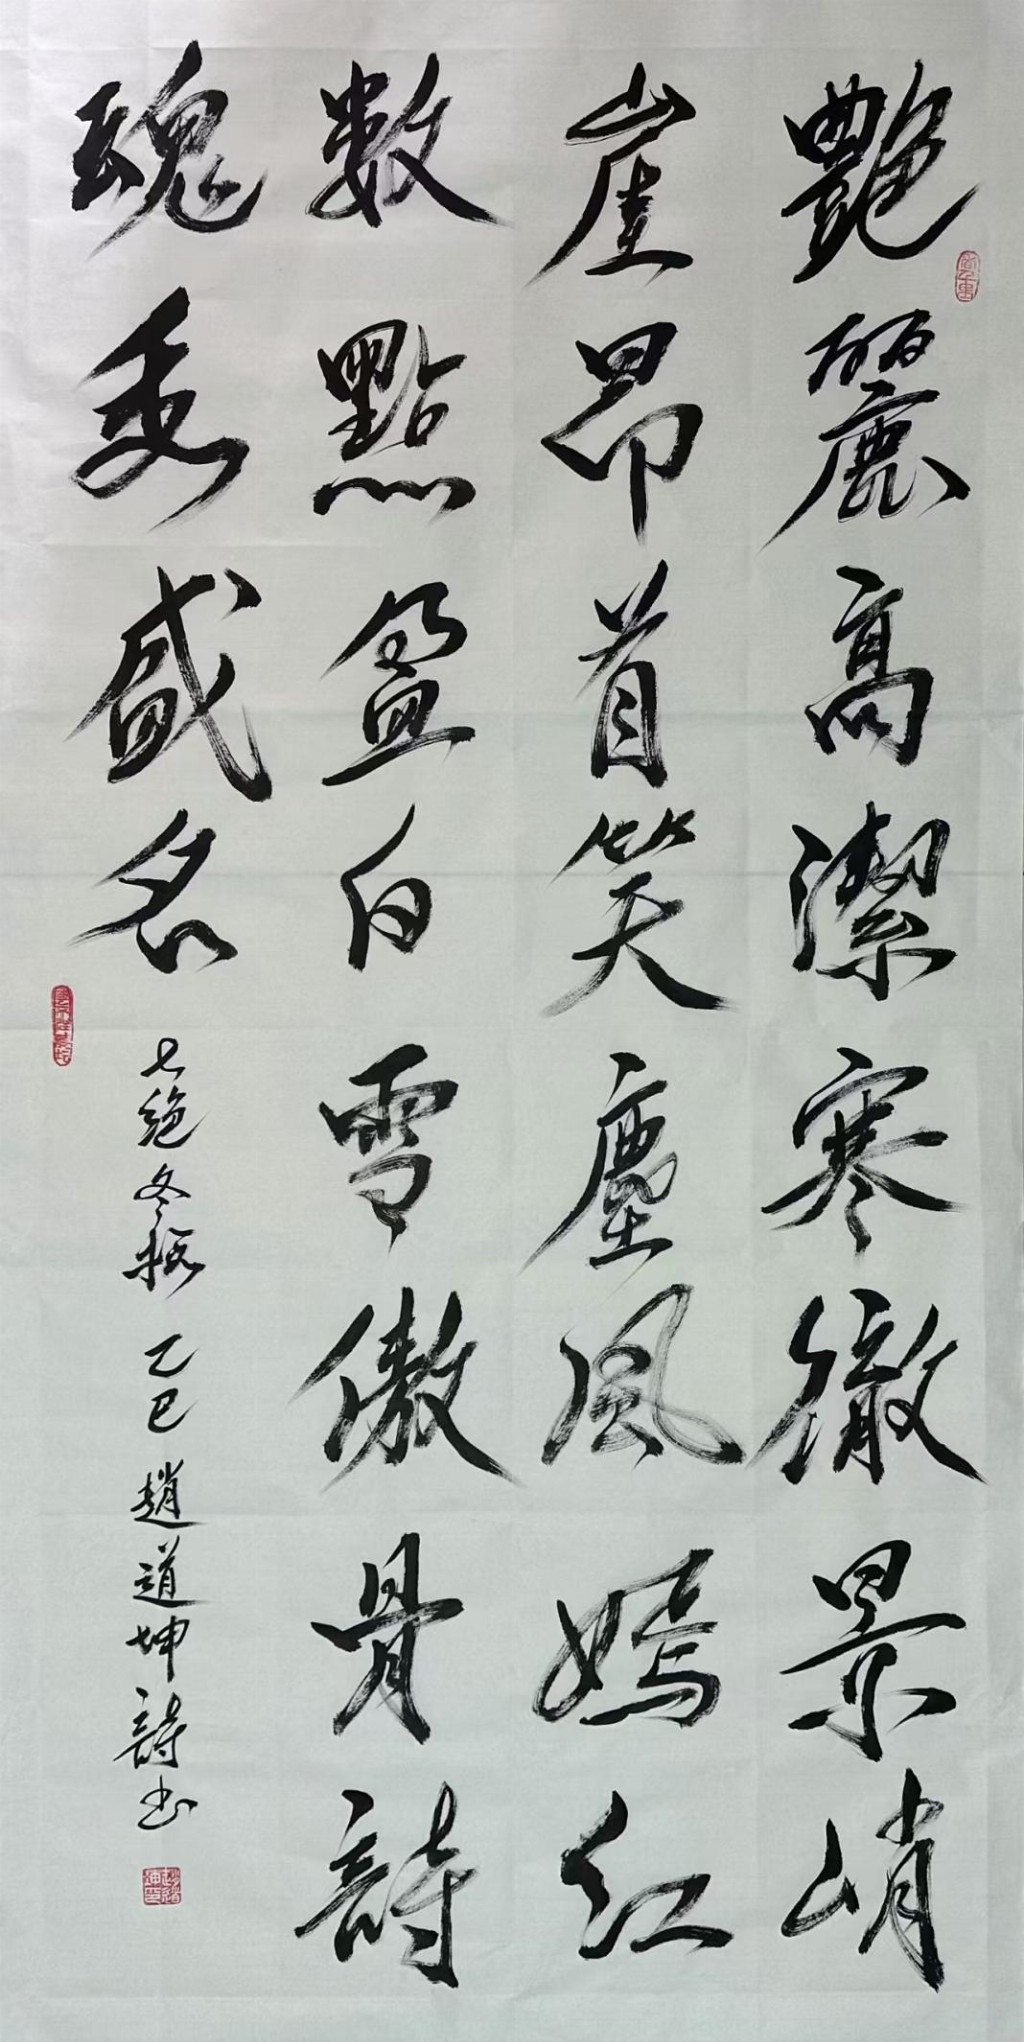 艷麗高潔寒徹景峭
崖昂首笑塵風嫣紅
數點盈白雪傲骨詩
魂委盛名
七絕冬梅 乙巳 趙道坤詩书